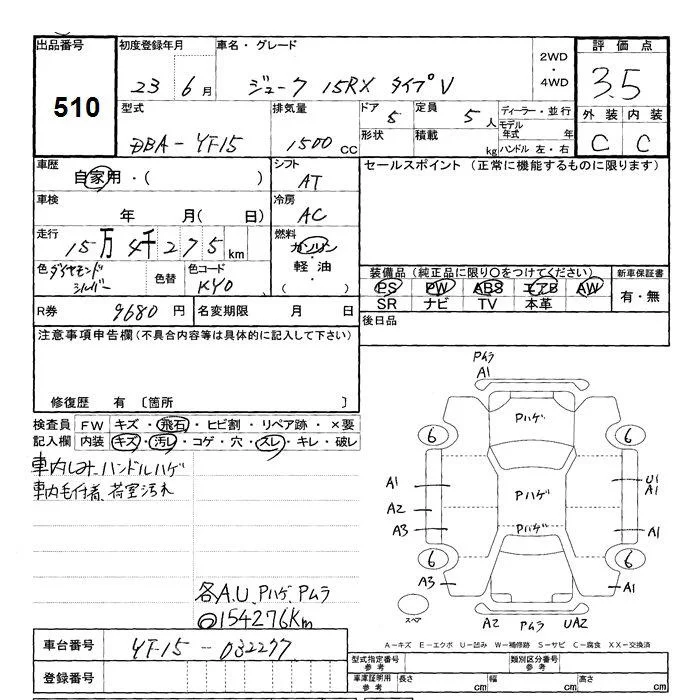 出品番号 初度登録年月 車名・グレード 2WD・4WD 評価点
510 23 6月 ジューク 15RX タイプV 3.5
型式 排気量 ドア 5 定員 5人 ディーラー・並行 外装 内装
DBA-YF15 1500CC 形状 積載 kg モデル年式 年 ハンドル 左・右 C C
車歴 自家用・( ) シフト AT セールスポイント (正常に機能するものに限ります)
車検 年 月( 日) 冷房 AC
走行 15万4千275km 燃料 ガソリン・軽油・( )
色 ダイヤモンドシルバー 色替 色コード KY0 装備品 (純正品に限り○をつけてください) 新車保証書
PS PW ABS エアB AW 有・無
SR ナビ TV 本革
R券 9680円 名変期限 月 日 後日品
注意事項申告欄 (不具合内容等は具体的に記入して下さい)
修復歴 有 〔箇所 〕
検査員 FW キズ・飛石・ヒビ割・リペア跡・×要
記入欄 内装 キズ・汚レ・コゲ・穴・スレ・キレ・破レ
車内しみ、ハンドルハゲ
車内毛付着、荷室汚れ
各A.U、Pハゲ、Pムラ
154276Km
Pムラ
A1
Pハゲ
6 6
A1 Pハゲ U1 A1
A2
A3 Pハゲ A1
6 6
A3 A1
スペア A2 Pムラ UA2
A-キズ E-エクボ U-凹み W-補修跡 S-サビ C-腐食 XX-交換済
車台番号 YF15-032277 型式指定番号 参考 類別区分番号 参考
登録番号 車庫証明用 参考 長さ cm 幅 cm 高さ cm